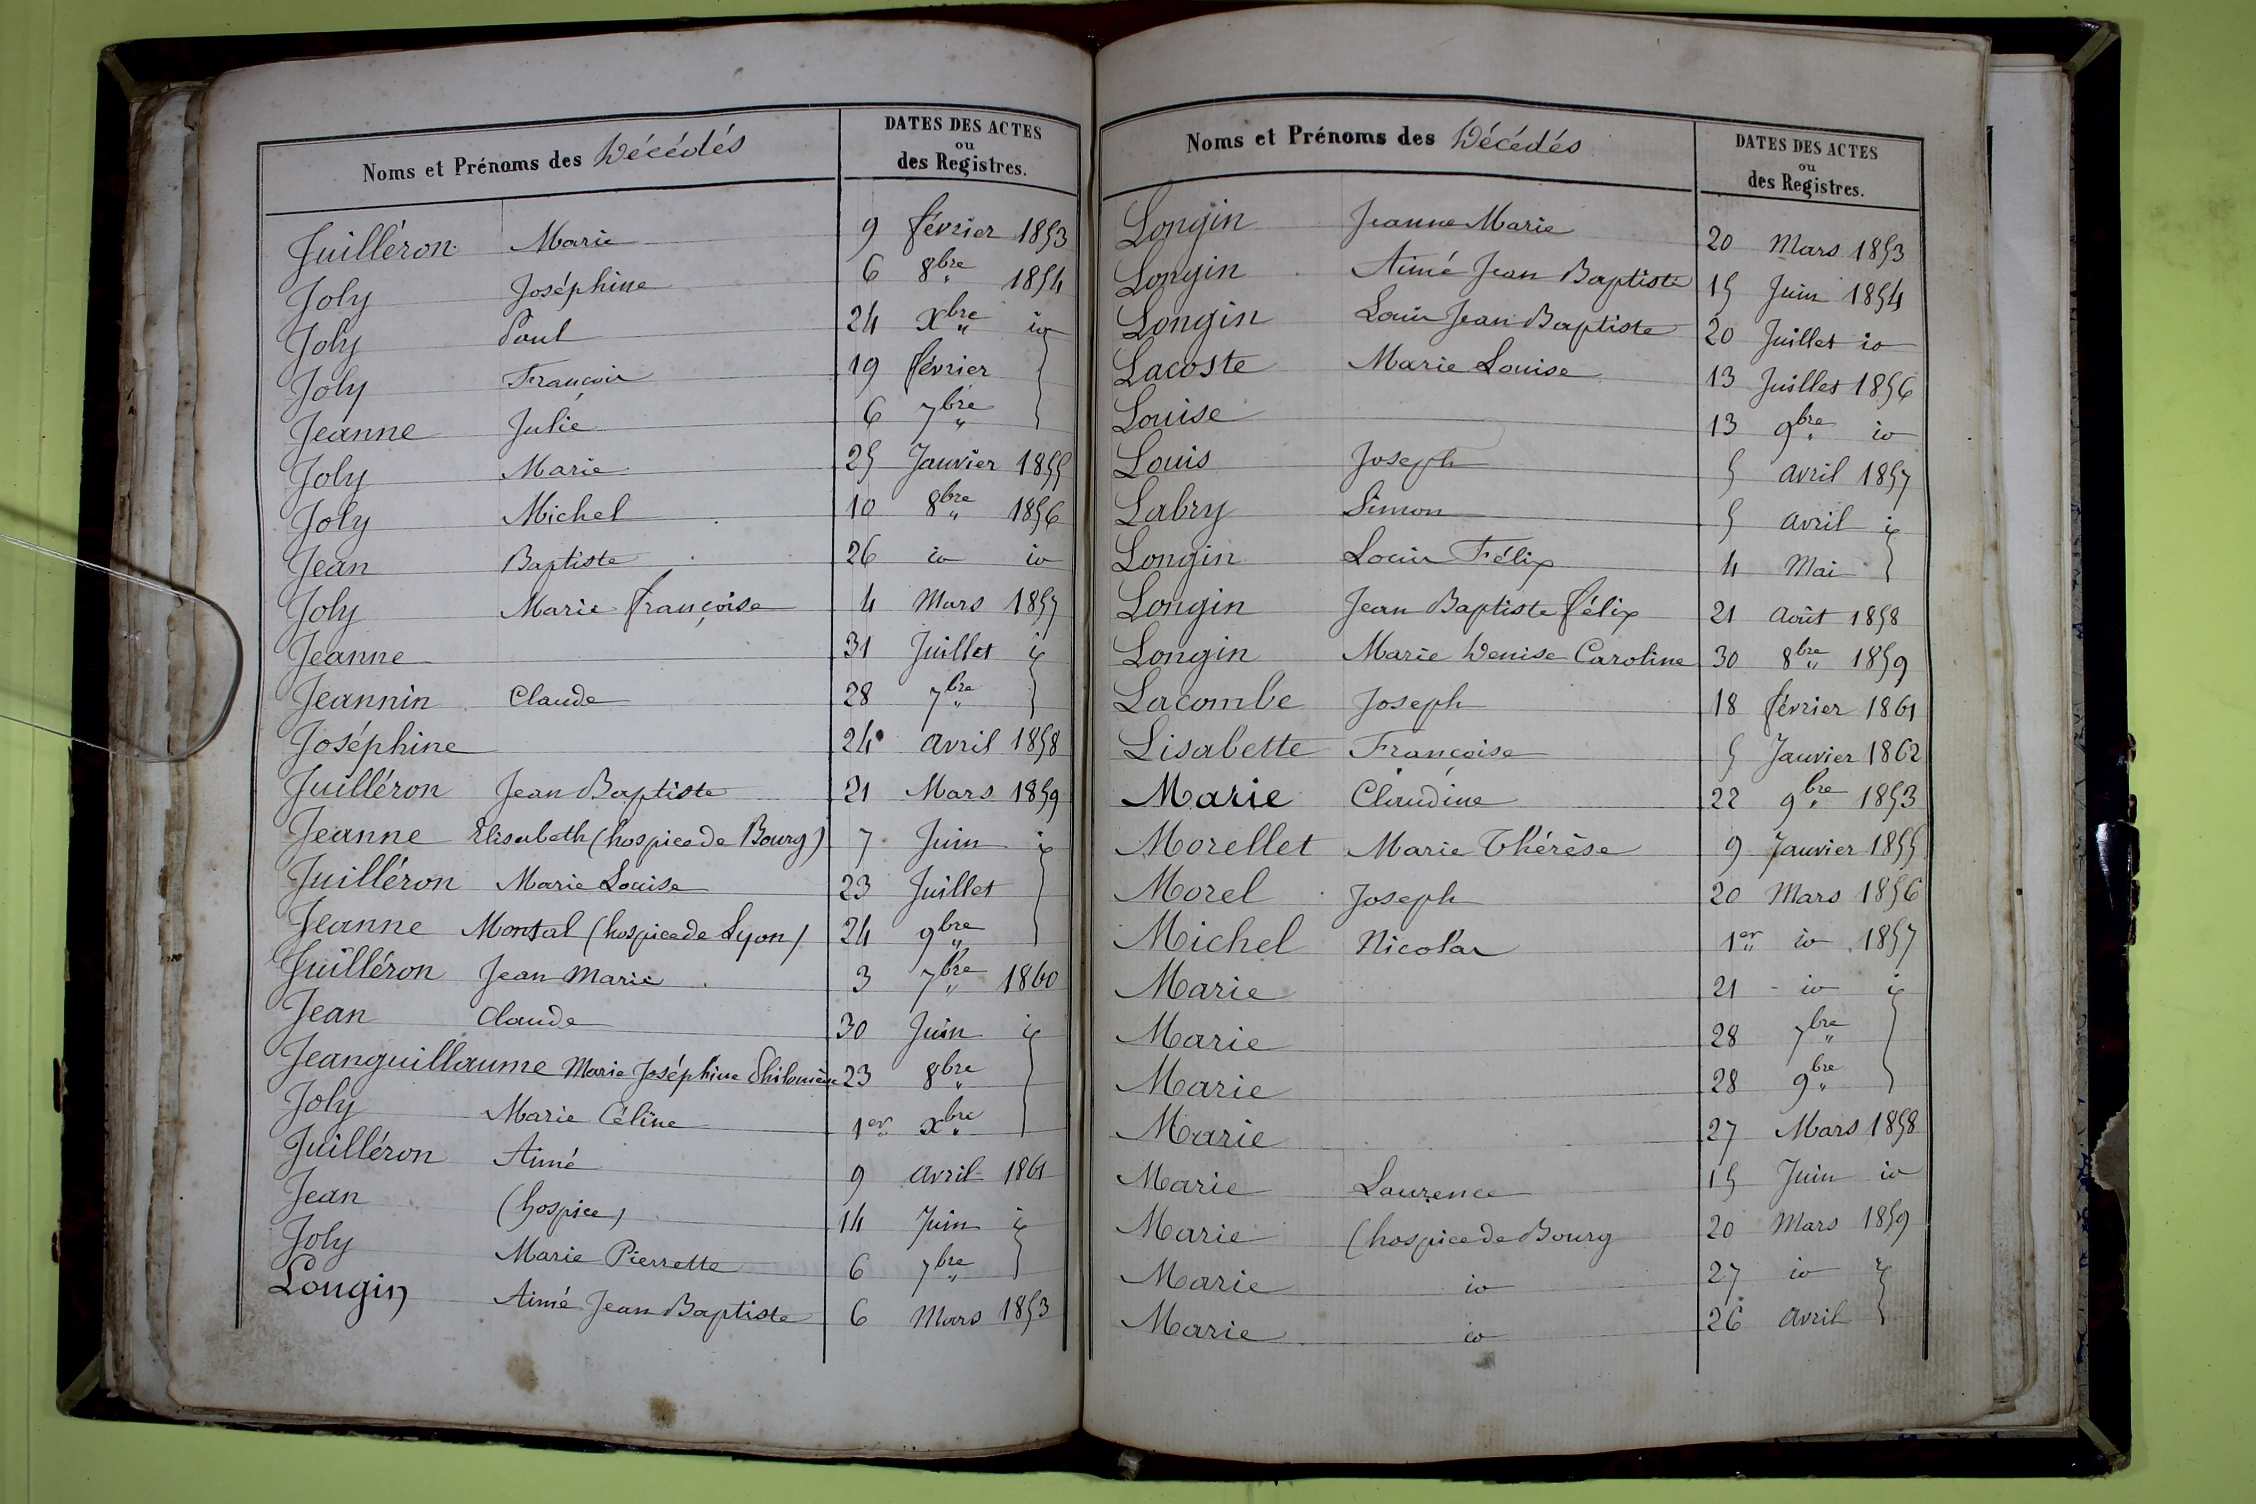 Noms et Prénoms des Décédés DATES DES ACTES
ou
des Registres.
Juilléron Marie 9 février 1853
Joly Joséphine 6 8bre 1854
Joly Paul 24 Xbre io
Joly François 19 février
Jeanne Julie 6 7bre
Joly Marie 25 Janvier 1855
Joly Michel 10 8bre 1856
Jean Baptiste 26 io io
Joly Marie françoise 4 Mars 1857
Jeanne 31 Juillet io
Jeannin Claude 28 7bre
Joséphine 24 avril 1858
Juilléron Jean Baptiste 21 Mars 1859
Jeanne Elisabeth (hospice de Bourg) 7 Juin io
Juilléron Marie Louise 23 Juillet
Jeanne Montal (hospice de Lyon) 24 9bre
Juilléron Jean Marie 3 7bre 1860
Jean Claude 30 Juin io
Jeanguillaume Marie Joséphine Philomène 23 8bre
Joly Marie Céline 1er Xbre
Juilléron Aimé 9 avril 1861
Jean (hospice) 14 Juin io
Joly Marie Pierrette 6 7bre
Longin Aimé Jean Baptiste 6 Mars 1853
Noms et Prénoms des Décédés DATES DES ACTES
ou
des Registres.
Longin Jeanne Marie 20 Mars 1853
Longin Aimé Jean Baptiste 15 Juin 1854
Longin Louis Jean Baptiste 20 Juillet io
Lacoste Marie Louise 13 Juillet 1856
Louise 13 9bre io
Louis Joseph 5 avril 1857
Labry Simon 5 avril io
Longin Louis Félix 4 Mai
Longin Jean Baptiste félix 21 Août 1858
Longin Marie Denise Caroline 30 8bre 1859
Lacombe Joseph 18 février 1861
Lisabette Françoise 5 Janvier 1862
Marie Claudine 22 9bre 1853
Morellet Marie Thérèse 9 Janvier 1855
Morel Joseph 20 Mars 1856
Michel Nicolas 1er io 1857
Marie 21 io io
Marie 28 7bre
Marie 28 9bre
Marie 27 Mars 1858
Marie Laurence 15 Juin io
Marie (hospice de Bourg 20 Mars 1859
Marie io 27 io io
Marie io 26 avril